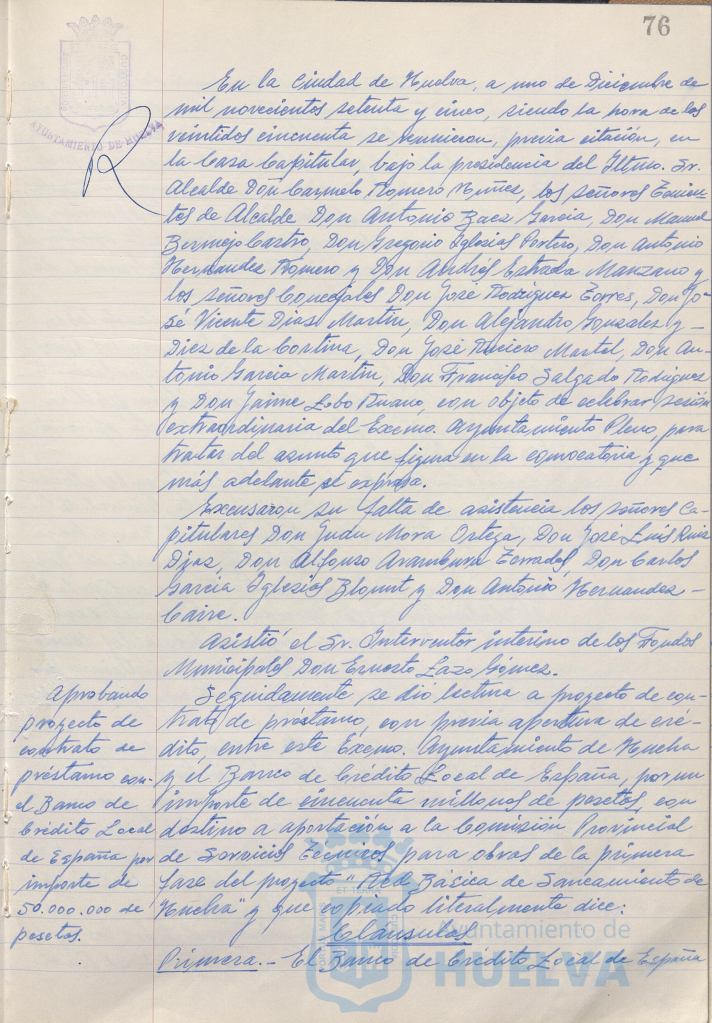 76
AYUNTAMIENTO DE HUELVA
En la Ciudad de Huelva, a uno de Diciembre de
mil novecientos setenta y cinco, siendo la hora de las
veintidos cincuenta se reunieron, previa citación, en
la Casa Capitular, bajo la presidencia del Iltmo. Sr.
Alcalde Don Carmelo Romero Nuñez, los señores Tenien-
tes de Alcalde Don Antonio Baez Garcia, Don Manuel
Bermejo Castro, Don Gregorio Iglesias Portero, Don Antonio
Hernandez Romero y Don Andrés Estrada Manzano y
los señores Concejales Don José Rodriguez Torres, Don Jo-
sé Vicente Dias Martin, Don Alejandro Gonzalez y -
Diez de la Cortina, Don José Ruciero Martel, Don An-
tonio Garcia Martin, Don Francisco Salgado Rodriguez
y Don Jaime Lobo Ruano, con objeto de celebrar sesión
extraordinaria del Excmo. Ayuntamiento Pleno, para
tratar del asunto que figura en la convocatoria y que
más adelante se expresa.
Excusaron su falta de asistencia los señores Ca-
pitulares Don Juan Mora Ortega, Don José Luis Ruiz
Diaz, Don Alfonso Aramburu Terrades, Don Carlos
Garcia Iglesias Blount y Don Antonio Hernandez -
Caire.
Asistió el Sr. Interventor interino de los Fondos
Municipales Don Ernesto Lazo Gómez.
Aprobando
proyecto de
contrato de
préstamo con-
el Banco de
Crédito Local
de España por
importe de
50.000.000 de
pesetas.
Seguidamente se dió lectura a proyecto de con-
trato de préstamo, con previa apertura de cré-
dito, entre este Excmo. Ayuntamiento de Huelva
y el Banco de Crédito Local de España, por un
importe de cincuenta millones de pesetas, con
destino a aportación a la Comisión Provincial
de Servicios Tecnicos para obras de la primera
fase del proyecto "Red Básica de Saneamiento de
Huelva" y que copiado literalmente dice:
Cláusulas
Primera.- El Banco de Crédito Local de España
Ayuntamiento de
HUELVA